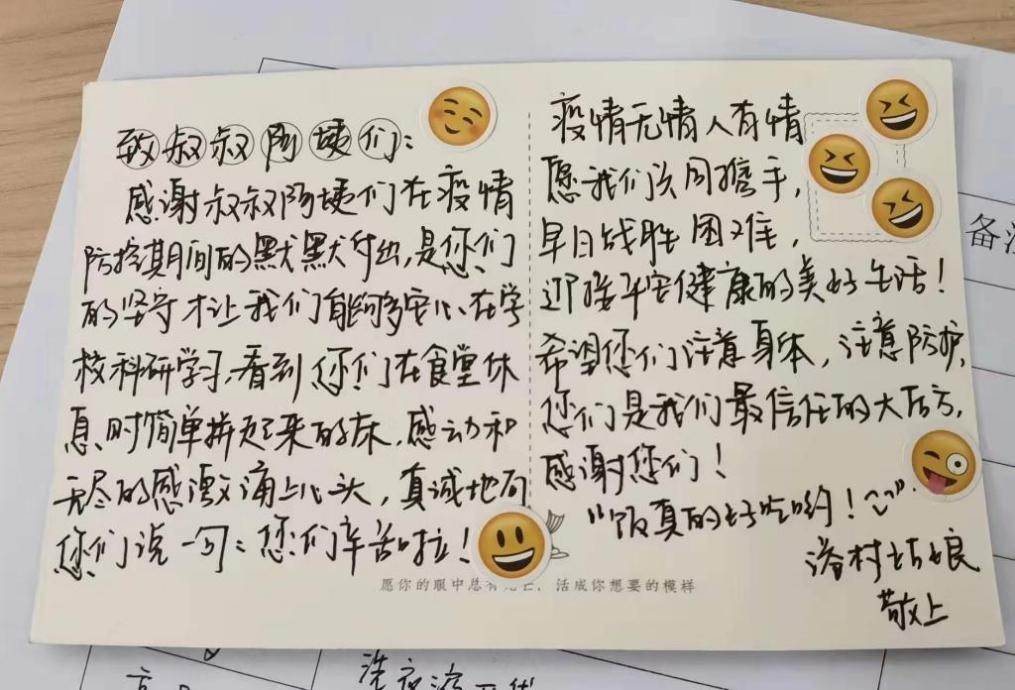 致叔叔阿姨们：
感谢叔叔阿姨们在疫情
防控期间的默默付出，是您们
的坚守才让我们能够安心在学
校科研学习，看到您们在食堂休
息时简单拼起来的床，感动和
无尽的感激涌上心头，真诚地向
您们说一句：您们辛苦啦！
疫情无情人有情
愿我们共同携手，
早日战胜困难，
迎接平安健康的美好生活！
希望您们注意身体，注意防护，
您们是我们最信任的大后方，
感谢您们！
“饭真的好吃哟！”
村姑娘
敬上
愿你的眼中总有光芒，活成你想要的模样
备注